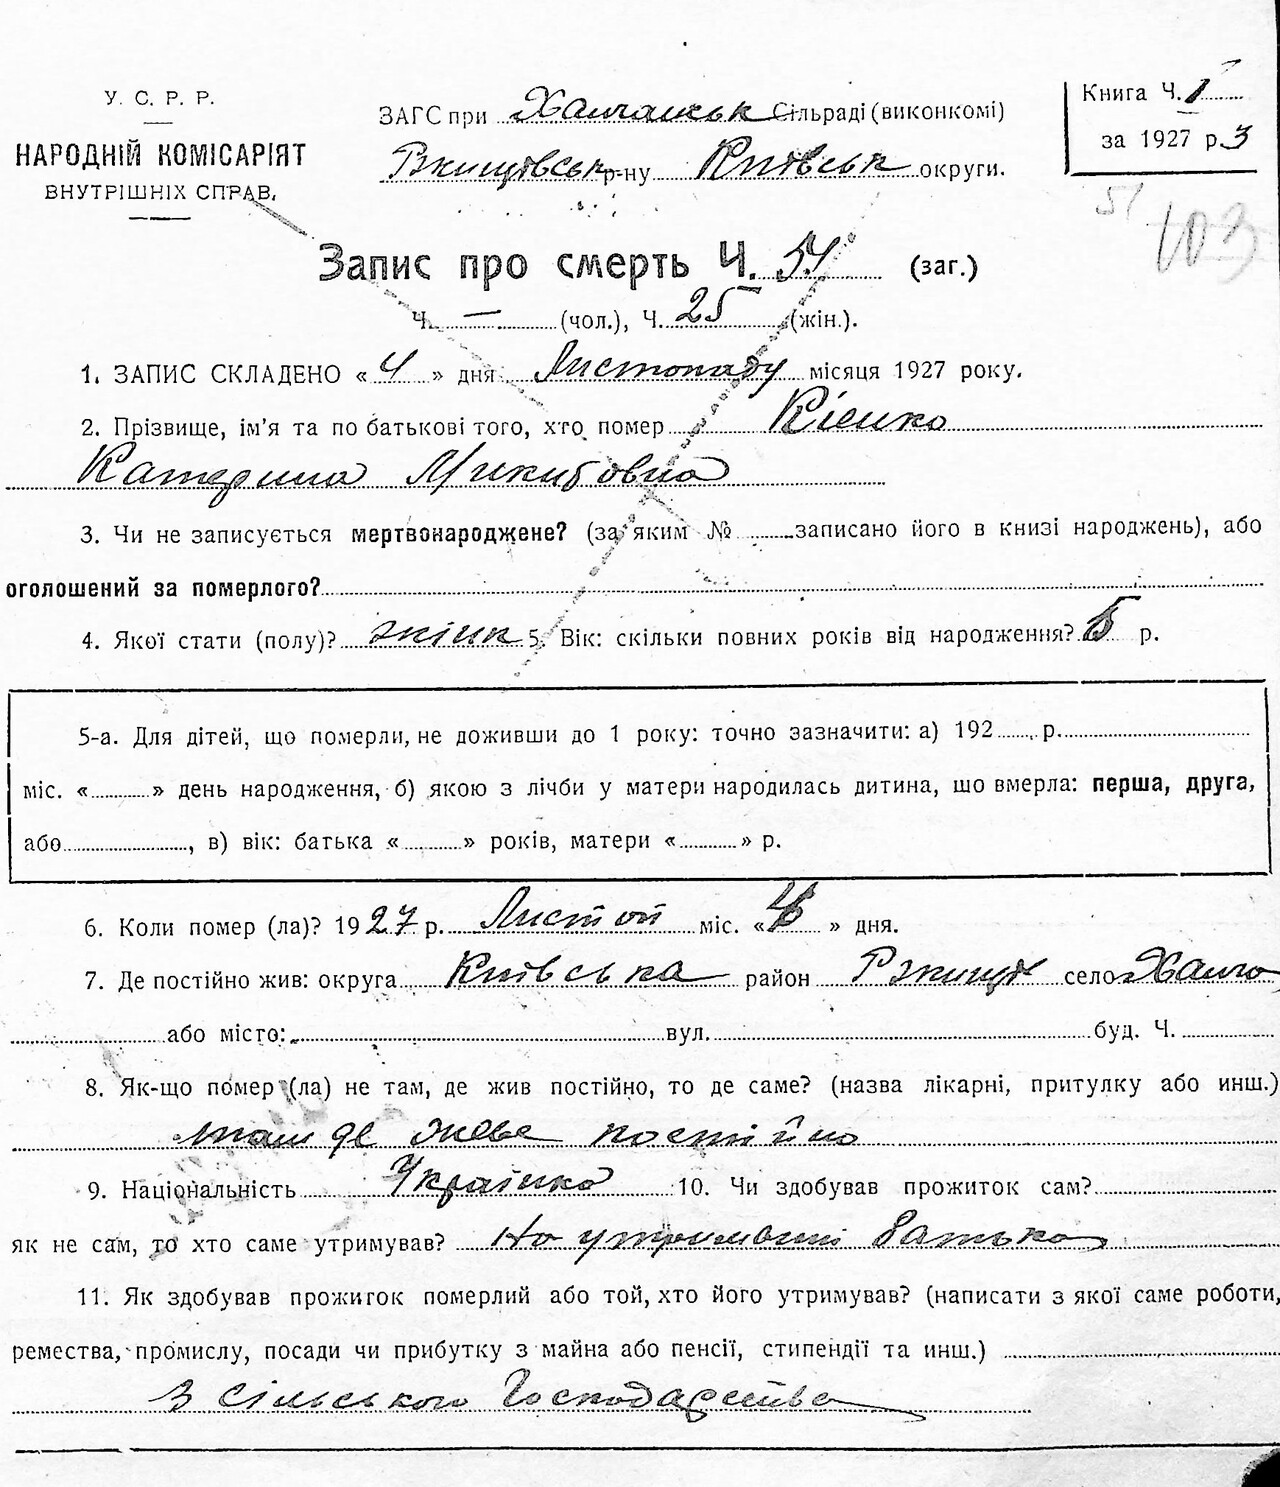 У. С. Р. Р.
НАРОДНІЙ КОМІСАРІЯТ
ВНУТРІШНІХ СПРАВ.
ЗАГС при Халчанськ Сільраді (виконкомі)
Ржищівськ р-ну Київськ округи.
Книга Ч. 1
за 1927 р. 3
51 103
Запис про смерть Ч. 51 (заг.)
Ч. — (чол.), Ч. 25 (жін.).
1. ЗАПИС СКЛАДЕНО « 4 » дня Листопаду місяця 1927 року.
2. Прізвище, ім'я та по батькові того, хто помер Кієнко
Катерина Микитовна
3. Чи не записується мертвонароджене? (за яким № записано його в книзі народжень), або
оголошений за померлого?
4. Якої стати (полу)? жінк 5. Вік: скільки повних років від народження? 5 р.
5-а. Для дітей, що померли, не доживши до 1 року: точно зазначити: а) 192 р.
міс. « » день народження, б) якою з лічби у матери народилась дитина, що вмерла: перша, друга,
або , в) вік: батька « » років, матери « » р.
6. Коли помер (ла)? 1927 р. Листоп міс. « » дня.
7. Де постійно жив: округа Київська район Ржищів село Халча
або місто: вул. буд. Ч.
8. Як-що помер (ла) не там, де жив постійно, то де саме? (назва лікарні, притулку або инш.)
там де живе постійно
9. Національність Українка 10. Чи здобував прожиток сам?
як не сам, то хто саме утримував? На утриманні батька
11. Як здобував прожиток померлий або той, хто його утримував? (написати з якої саме роботи,
ремества, промислу, посади чи прибутку з майна або пенсії, стипендії та инш.)
З сільського Господарства